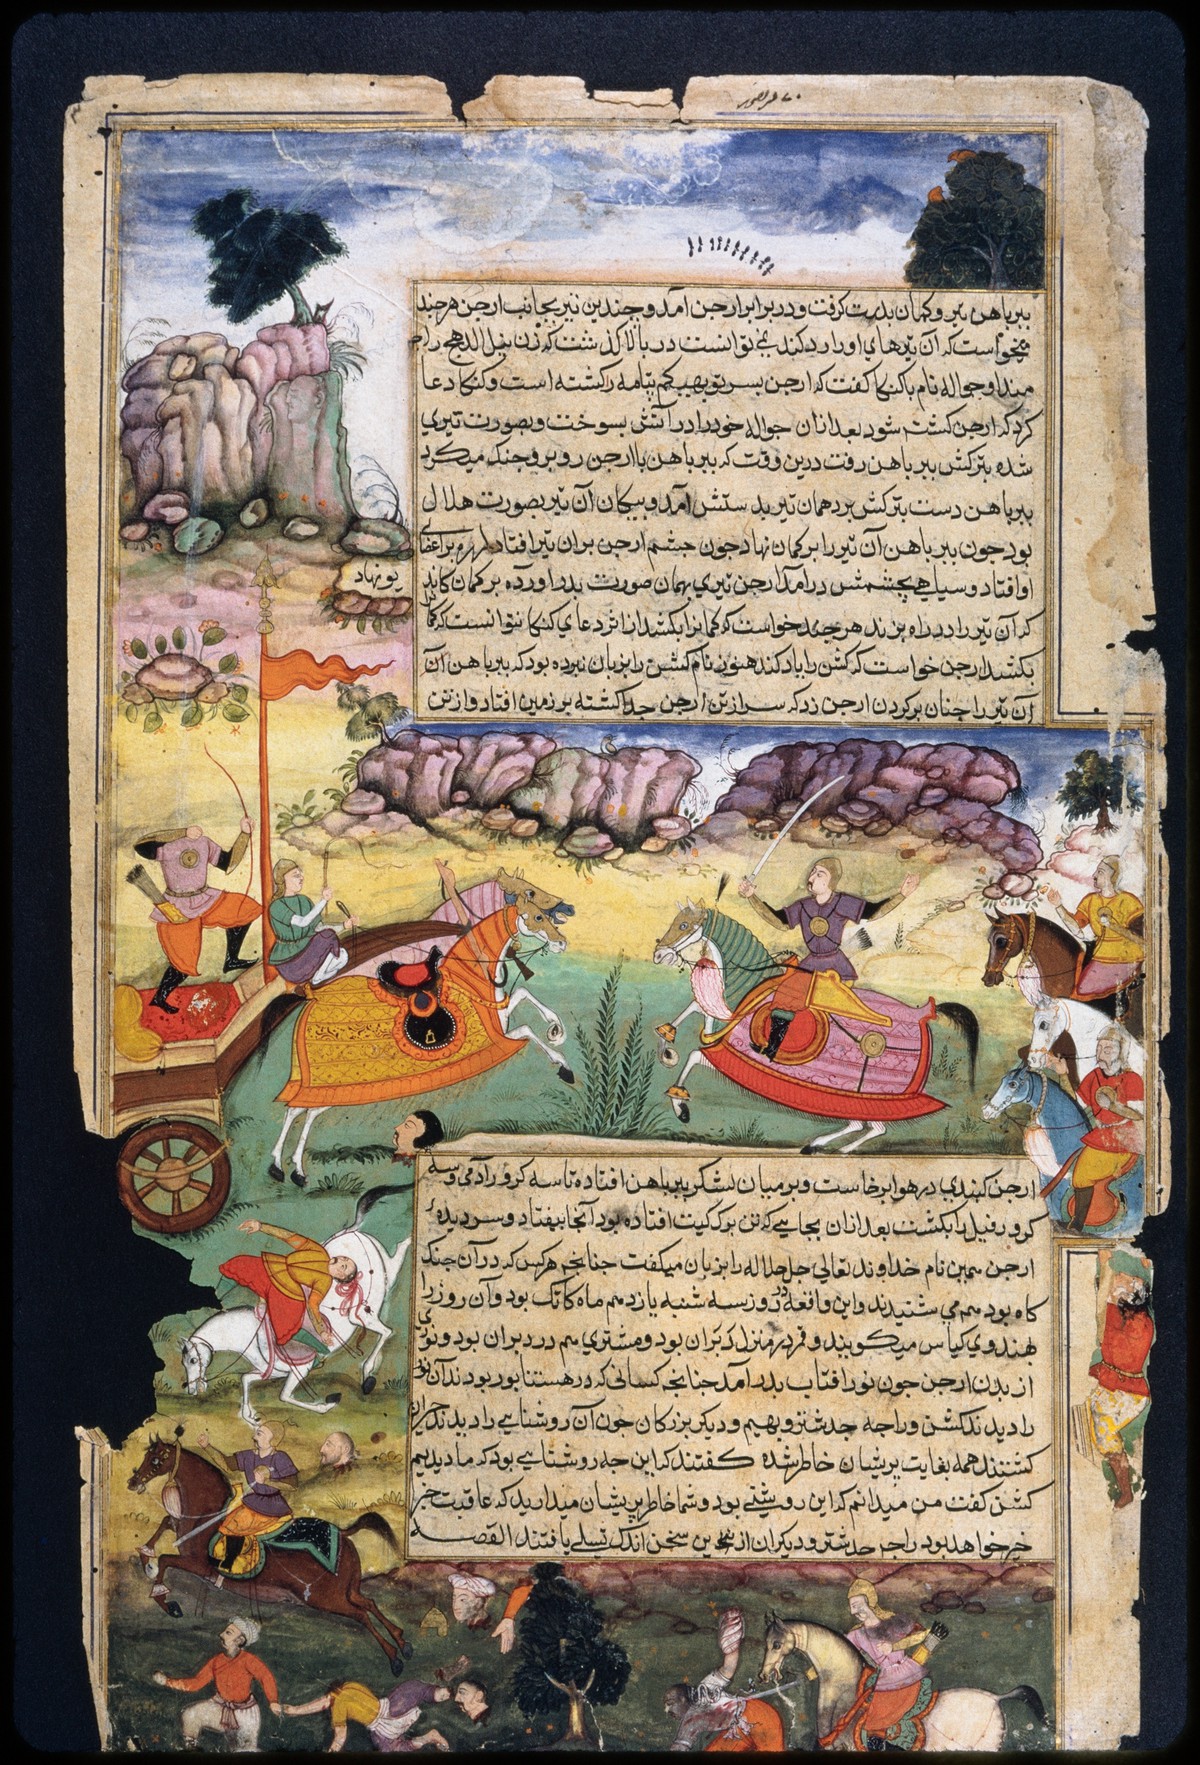 ببرباهن تیر وکمان بدست کرفت ودر برابر ارجن آمد و چندین تیر بجانب ارجن هر چند
میخواست که آن تیرهای او را رد کند نمی توانست در بالا کذشت که زن نیل الدهج راجه
او جواله نام با کنکا کفت که ارجن پسر تو بهیکم پتامه را کشته است و کنکا دعا
کرد که ارجن کشته شود بعد ازان جواله خود را در آتش بسوخت وبصورت تیری
شده بترکش ببرباهن رفت درین وقت که ببرباهن با ارجن روبرو جنک میکرد
ببرباهن دست بترکش برد همان تیر بدستش آمد و پیکان آن تیر بصورت هلال
بود چون ببرباهن آن تیر را بر کمان نهاد چون چشم ارجن بران تیر افتاد لرزه بر اعضای
او افتاد و سیاهی بچشمش در آمد ارجن تیری بهمان صورت بدر آورده بر کمان
یو نهاد
که آن تیر را در راه بزند هر چند خواست که کمانرا بکشد از اثر دعای کنکا نتوانست که کمان
بکشد ارجن خواست که کشن را یاد کند هنوز نام کشن را بزبان نبرده بود که ببرباهن آن
آن تیر را چنان بر کردن ارجن زد که سر از تن ارجن جدا کشته بر زمین افتاد و از تن
ارجن کبندی در هوا برخاست و بر میان لشکر ببرباهن افتاده تا سه کرور آدمی و سه
کرور فیل را بکشت بعد ازان بجایی که تن برک کیت افتاده بود آنجا بیفتاد و سر بریدهٔ
ارجن همین نام خداوند تعالی جل جلاله را بزبان میکفت چنانچه هر کس که در آن جنک
کاه بود همه می شنیدند و این واقعه در روز سه شنبه یازدهم ماه کاتک بود و آن روز را
بهندوی کیاس میکویند و قمر در منزل دبران بود و مشتری هم در دبران بود و نوری
از بدن ارجن چون نور افتاب بدر آمد چنانچه کسانی که در هستناپور بودند آن نور
را دیدند کشن و راجه جدشتر و بهیم و دیکر بزرکان چون آن روشنایی را دیدند حیران
کشتند همه بغایت پریشان خاطر شده کفتند که این چه روشنایی بود که ما دیدیم
کشن کفت من میدانم که این روشنی بود و شما خاطر پریشان میدارید که عاقبت خیر
خیر خواهد بود راجه جدشتر و دیکران از این سخن اندک تسلی یافتند القصه